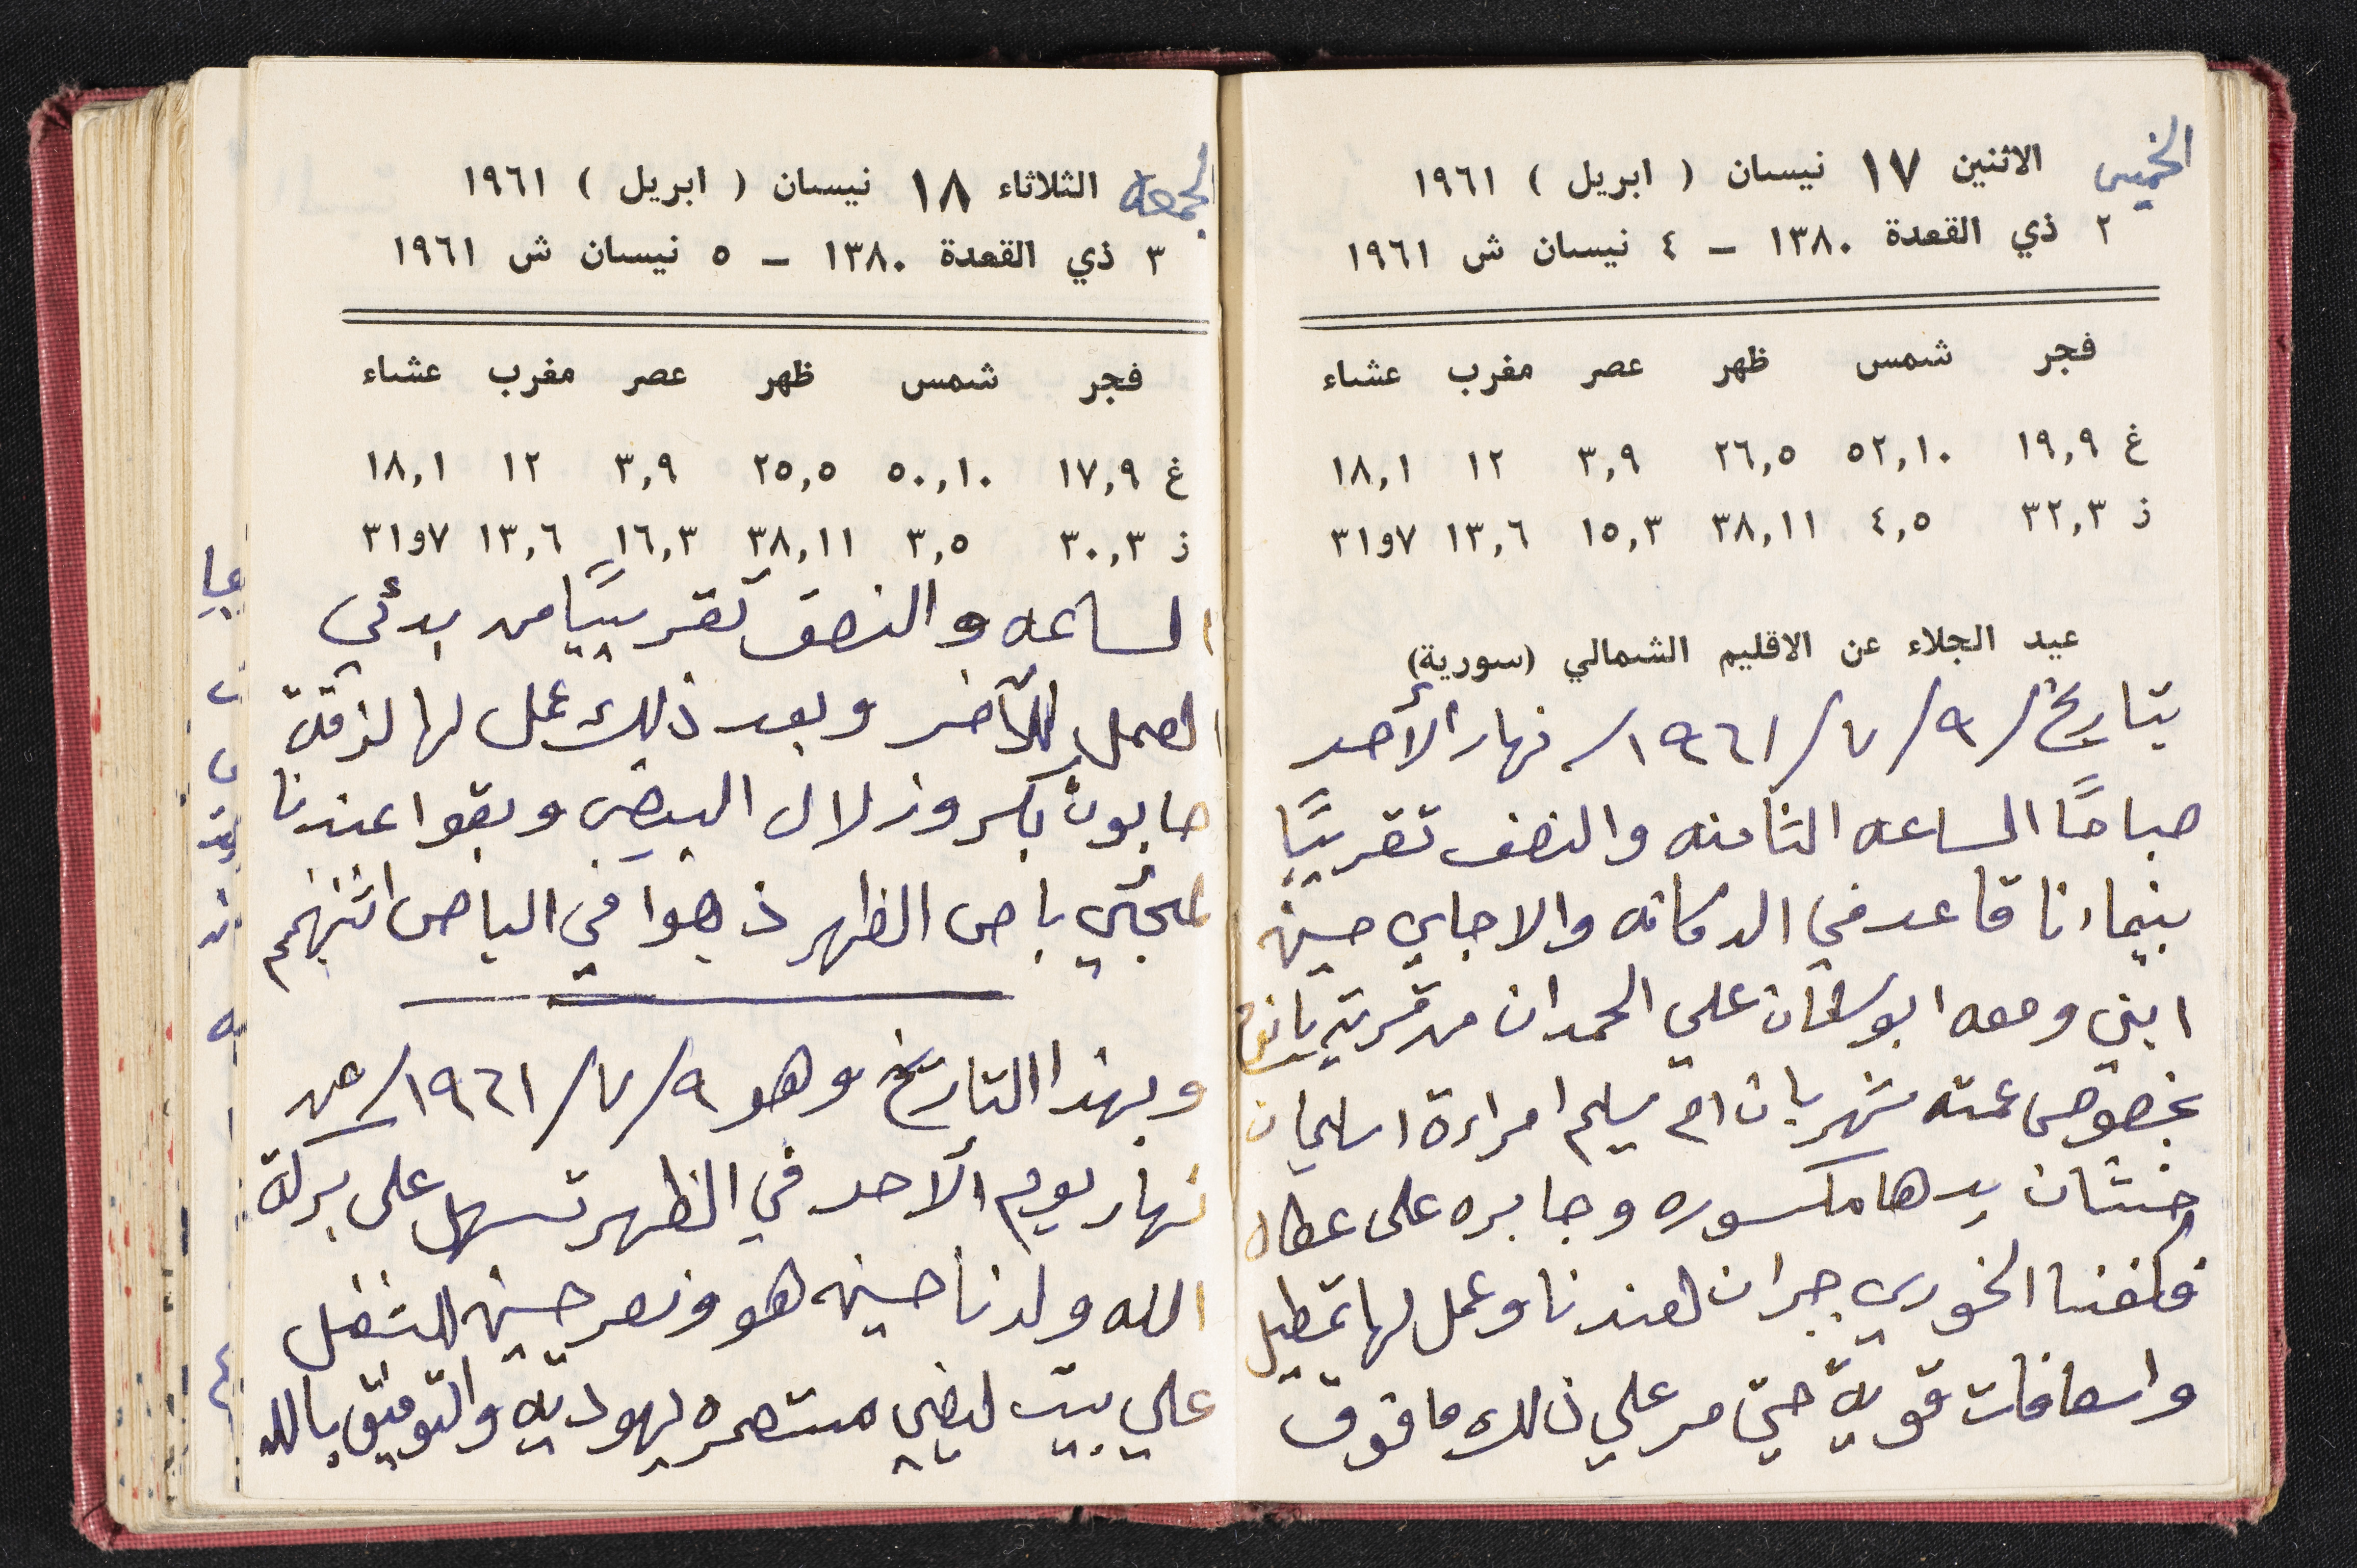 الخميس الاثنين ١٧ نيسان ( ابريل ) ١٩٦١
٢ ذي القعدة ١٣٨٠ – ٤ نيسان ش ١٩٦١
فجر شمس ظهر عصر مغرب عشاء
غ ١٩,٩ ٥٢,١٠ ٢٦,٥ ٣,٩ ١٢ ١٨,١
ز ٣٢,٣ ٤,٥ ٣٨,١١ ١٥,٣ ١٣,٦ ٧و٣١
عيد الجلاء عن الاقليم الشمالي (سورية)
بتاريخ /٩/٧/١٩٦١/ نهار الأحد
صباحًا الساعه الثامنه والنصف تقريبًا
بينما انا قاعد في الدكانه والا جاي حسين
ابني ومعه ابو سلمان علي الحمدان من قرية يانوح
بخصوص عمته شهربان ام سليم امراءة اسليمان
خنثان يدها مكسوره وجابره على عطال
فكلفنا الخوري جبران لعندنا وعمل لها تمطيل
واسعافات قوية حتى مر علي ذلك ما فوق
الجمعة الثلاثاء ١٨ نيسان ( ابريل ) ١٩٦١
٣ ذي القعدة ١٣٨٠ – ٥ نيسان ش ١٩٦١
فجر شمس ظهر عصر مغرب عشاء
غ ١٧,٩ ٥٠,١٠ ٢٥,٥ ٣,٩ ١٢ ١٨,١
ز ٣٠,٣ ٣,٥ ٣٨,١١ ١٦,٣ ١٣,٦ ٧و٣١
الساعه والنصف تقريبًا من بدئي
العمل للآخر وبعد ذلك عمل لها لزقة
صابون بكر وزلال البيض وبقوا عندنا
لمجئي باص الظهر ذهبوا في الباص اثنينهم
وبهذا التاريخ وهو ٩/٧/١٩٦١/ من
نهار يوم الاحد في الظهر تسهل على بركة
الله ولدنا حسين هو ونمر حسين للشغل
علي بيت ليفي مستعمره يهودية والتوفيق بالله